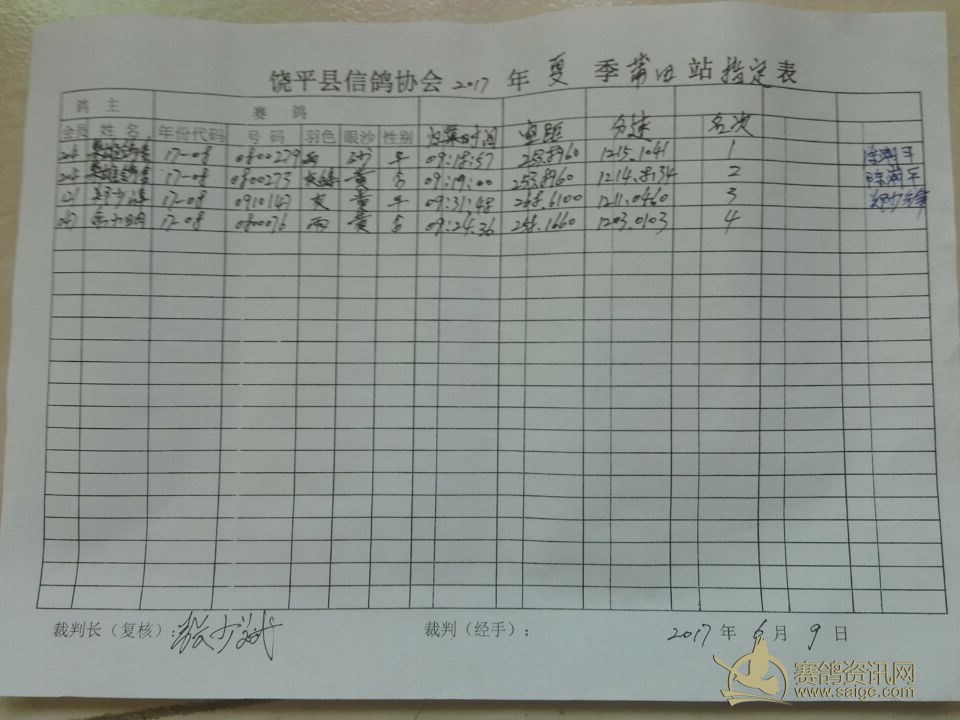 饶平县信鸽协会 2017 年 夏 季 莆田 站 指定 表
鸽 主 赛 鸽
会员 姓 名 年份代码 号 码 羽色 眼沙 性别 时间 空距 分速 名次
17-08 0800279 雨 沙 09:18:57 253.8960 1215.1041 1
17-08 0800273 黄 09:19:00 253.8960 1214.8134 2
121 17-08 0910147 灰 黄 09:31:48 268.6100 1211.0460 3
047 17-08 0800076 雨 黄 09:24:36 254.1660 1203.0103 4
裁判长（复核）： 裁判（经手）： 2017 年 6 月 9 日
赛鸽资讯网
www.saigc.com